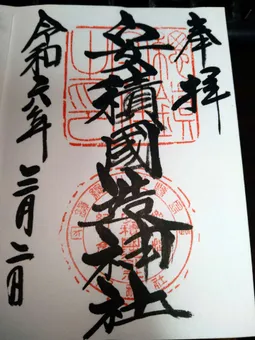 奉拝
安積國造神社
令和六年三月二日